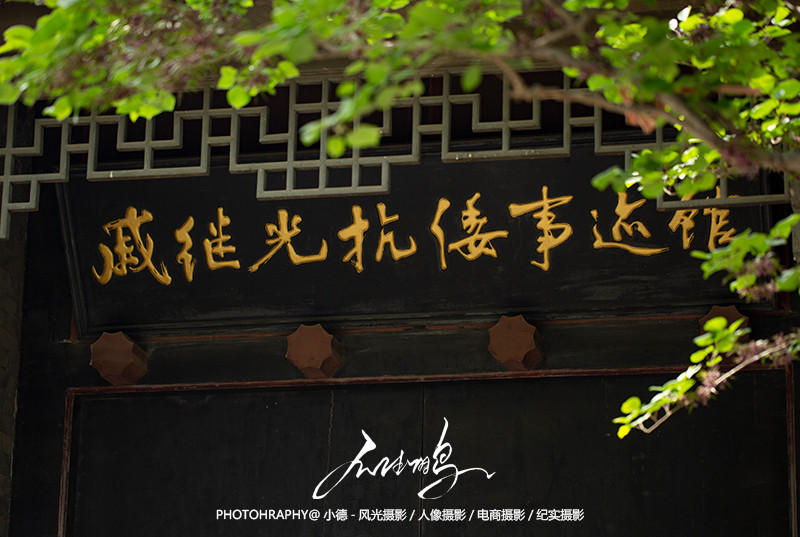 戚继光抗倭事迹馆
PHOTOHRAPHY@ 小德 - 风光摄影 / 人像摄影 / 电商摄影 / 纪实摄影